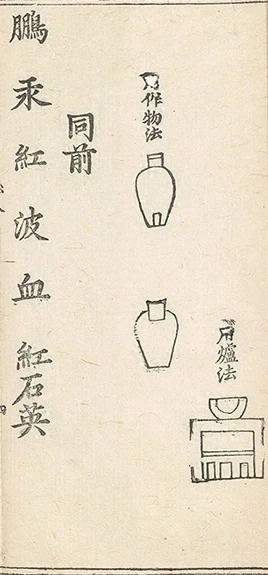 用爐法
作物法
同前
鵬 汞 紅 波 血 紅石英